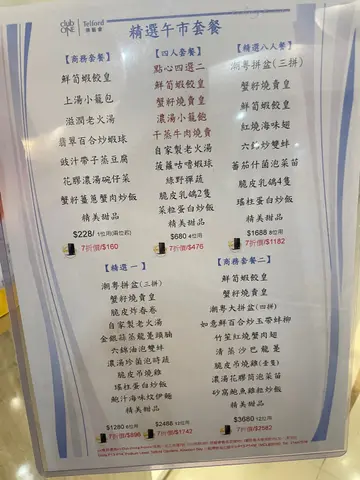 club ONE
Telford
德福會
精選午市套餐
【商務套餐】
鮮筍蝦餃皇
上湯小籠包
滋潤老火湯
翡翠百合炒蝦球
豉汁帶子蒸豆腐
花膠濃湯碗仔菜
蟹籽薑蔥蟹肉炒飯
精美甜品
$228/ 1位用(兩位起)
7折價/$160
【四人套餐】
點心四選二
鮮筍蝦餃皇
蟹籽燒賣皇
濃湯小籠飽
干蒸牛肉燒賣
自家製老火湯
菠蘿咕嚕蝦球
綠野禪蔬
脆皮乳鴿2隻
菜粒蛋白炒飯
精美甜品
$680 4位用
7折價/$476
【精選八人餐】
潮粵拼盆(三拼)
蟹籽燒賣皇
鮮筍蝦餃皇
紅燒海味翅
六錦炒雙蚌
蕃茄什菌泡菜苗
脆皮乳鴿4隻
瑤柱蛋白炒飯
精美甜品
$1688 8位用
7折價/$1182
【精選一】
潮粵拼盆(三拼)
蟹籽燒賣皇
脆皮炸春卷
自家製老火湯
金銀蒜蒸龍躉頭腩
六錦油泡雙蚌
濃湯珍菌泡時蔬
脆皮吊燒雞
瑤柱蛋白炒飯
鮑汁海味炆伊麵
精美甜品
$1280 6位用
7折價/$896
$2488 12位用
7折價/$1742
【商務套餐二】
鮮筍蝦餃皇
蟹籽燒賣皇
潮粵大拼盆(四拼)
如意鮮百合炒玉帶蚌柳
竹笙紅燒蟹肉翅
清蒸沙巴龍躉
脆皮吊燒雞(壹隻)
濃湯花膠筒泡菜苗
砂窩鮑魚雞粒炒飯
精美甜品
$3680 12位用
7折價/$2582